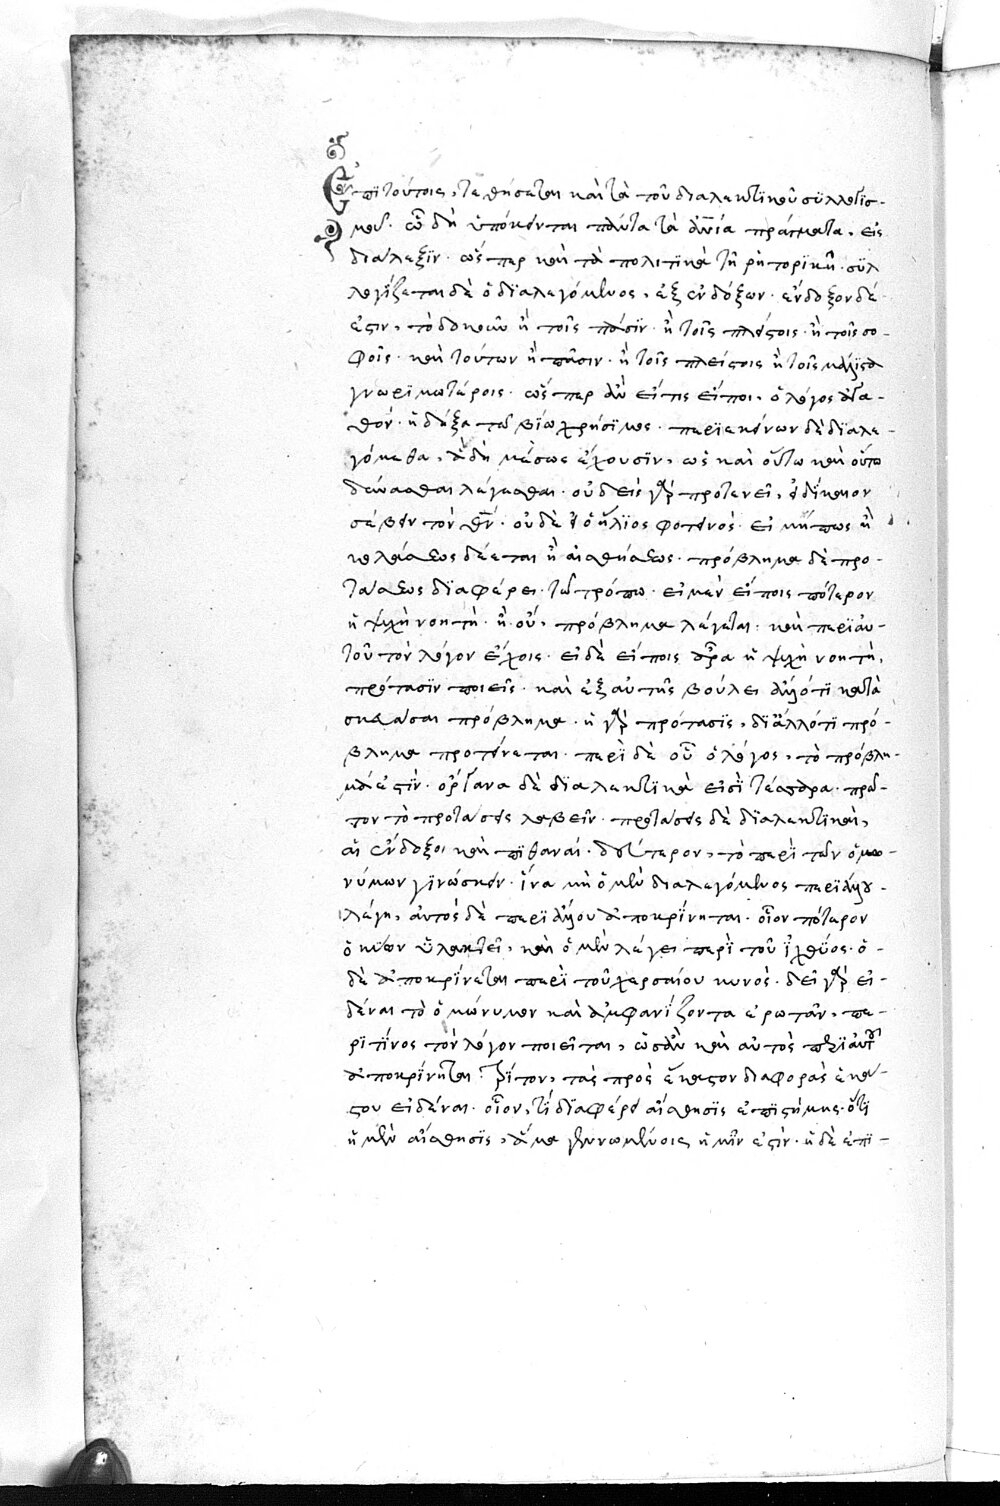 Ἐπὶ τούτοις, τεθήσεται καὶ τὰ τοῦ διαλεκτικοῦ συλλογισ-
μοῦ. ᾧ δὴ ὑπόκεινται πάντα τὰ πράγματα, εἰς
διάλεξιν. ὥσπερ καὶ τὰ πολιτικὰ τῇ ῥητορικῇ. συλ
λογίζεται δὲ ὁ διαλεγόμενος, ἐξ ἐνδόξων. ἔνδοξον δέ
ἐστιν, τὸ δοκοῦν ἢ τοῖς πᾶσιν. ἢ τοῖς πλείστοις. ἢ τοῖς σο-
φοῖς. καὶ τούτων ἢ πᾶσιν. ἢ τοῖς πλείστοις ἢ τοῖς μάλιστα
γνωριμωτέροις. ὥσπερ ἂν εἴ τις εἴποι, ὁ λόγος ἀγα-
θόν. ἡ δόξα τῷ βίῳ χρήσιμος. περὶ ἐκείνων δὲ διαλε-
γόμεθα, ἃ δὴ μέσως ἔχουσιν, ὡς καὶ οὕτω καὶ οὕτω
δύνασθαι λέγεσθαι. οὐδεὶς γὰρ προτενεῖ, εἰ δίκαιον
σέβειν τὸν θν. οὐδὲ εἰ ὁ ἥλιος φοτεινός. εἰ μήπως ἢ
κολάσεως δέεται ἢ αἰσθήσεως. πρόβλημα δὲ προ-
τάσεως διαφέρει. τῷ τρόπῳ. εἰ μὲν εἴποις πότερον
ἡ ψυχὴ νοητὴ. ἢ οὔ, πρόβλημα λέγεται. καὶ περὶ αὐ-
τοῦ τὸν λόγον ἔχοις. εἰ δὲ εἴποις ἆρα ἡ ψυχὴ νοητὴ,
πρότασιν ποιεῖς. καὶ ἐξ αὐτῆς βούλει ἄλλό τι κατα
σκευάσαι πρόβλημα. ἡ γὰρ πρότασις, δι᾽ ἄλλό τι πρό-
βλημα προτείνεται. περὶ δὲ οὗ ὁ λόγος, τὸ πρόβλη-
μά ἐστιν. ὄργανα δὲ διαλεκτικὰ εἰσὶ τέσσαρα. πρῶ-
τον τὸ προτάσεις λαβεῖν. προτάσεις δὲ διαλεκτικαὶ,
αἱ ἔνδοξοι καὶ πιθαναί. δεύτερον, τὸ περὶ τῶν ὁμω-
νύμων γινώσκειν. ἵνα μὴ ὁ μὲν διαλεγόμενος περὶ ἄλλου
λέγῃ, αὐτὸς δὲ περὶ ἄλλου ἀποκρίνηται. οἷον πότερον
ὁ κύων ὑλακτεῖ, καὶ ὁ μὲν λέγει περὶ τοῦ ἰχθύος. ὁ-
δὲ ἀποκρίνεται περὶ τοῦ χερσαίου κυνός. δεῖ γὰρ εἰ-
δέναι τὸ ὁμώνυμον καὶ ἐμφανίζοντα ἐρωτᾶν, πε-
ρὶ τίνος τὸν λόγον ποιεῖται, ὡς ἂν καὶ αὐτὸς περὶ αὐτοῦ
ἀποκρίνηται. Τρίτον, τὰς πρὸς ἕκαστον διαφορὰς ἑκά-
στου εἰδέναι. οἷον, τί διαφέρει αἴσθησις ἐπιστήμης. ὅτι
ἡ μὲν αἴσθησις, ἅμα γεννωμένοις ἡμῖν ἐστὶν. ἡ δὲ ἐπι-